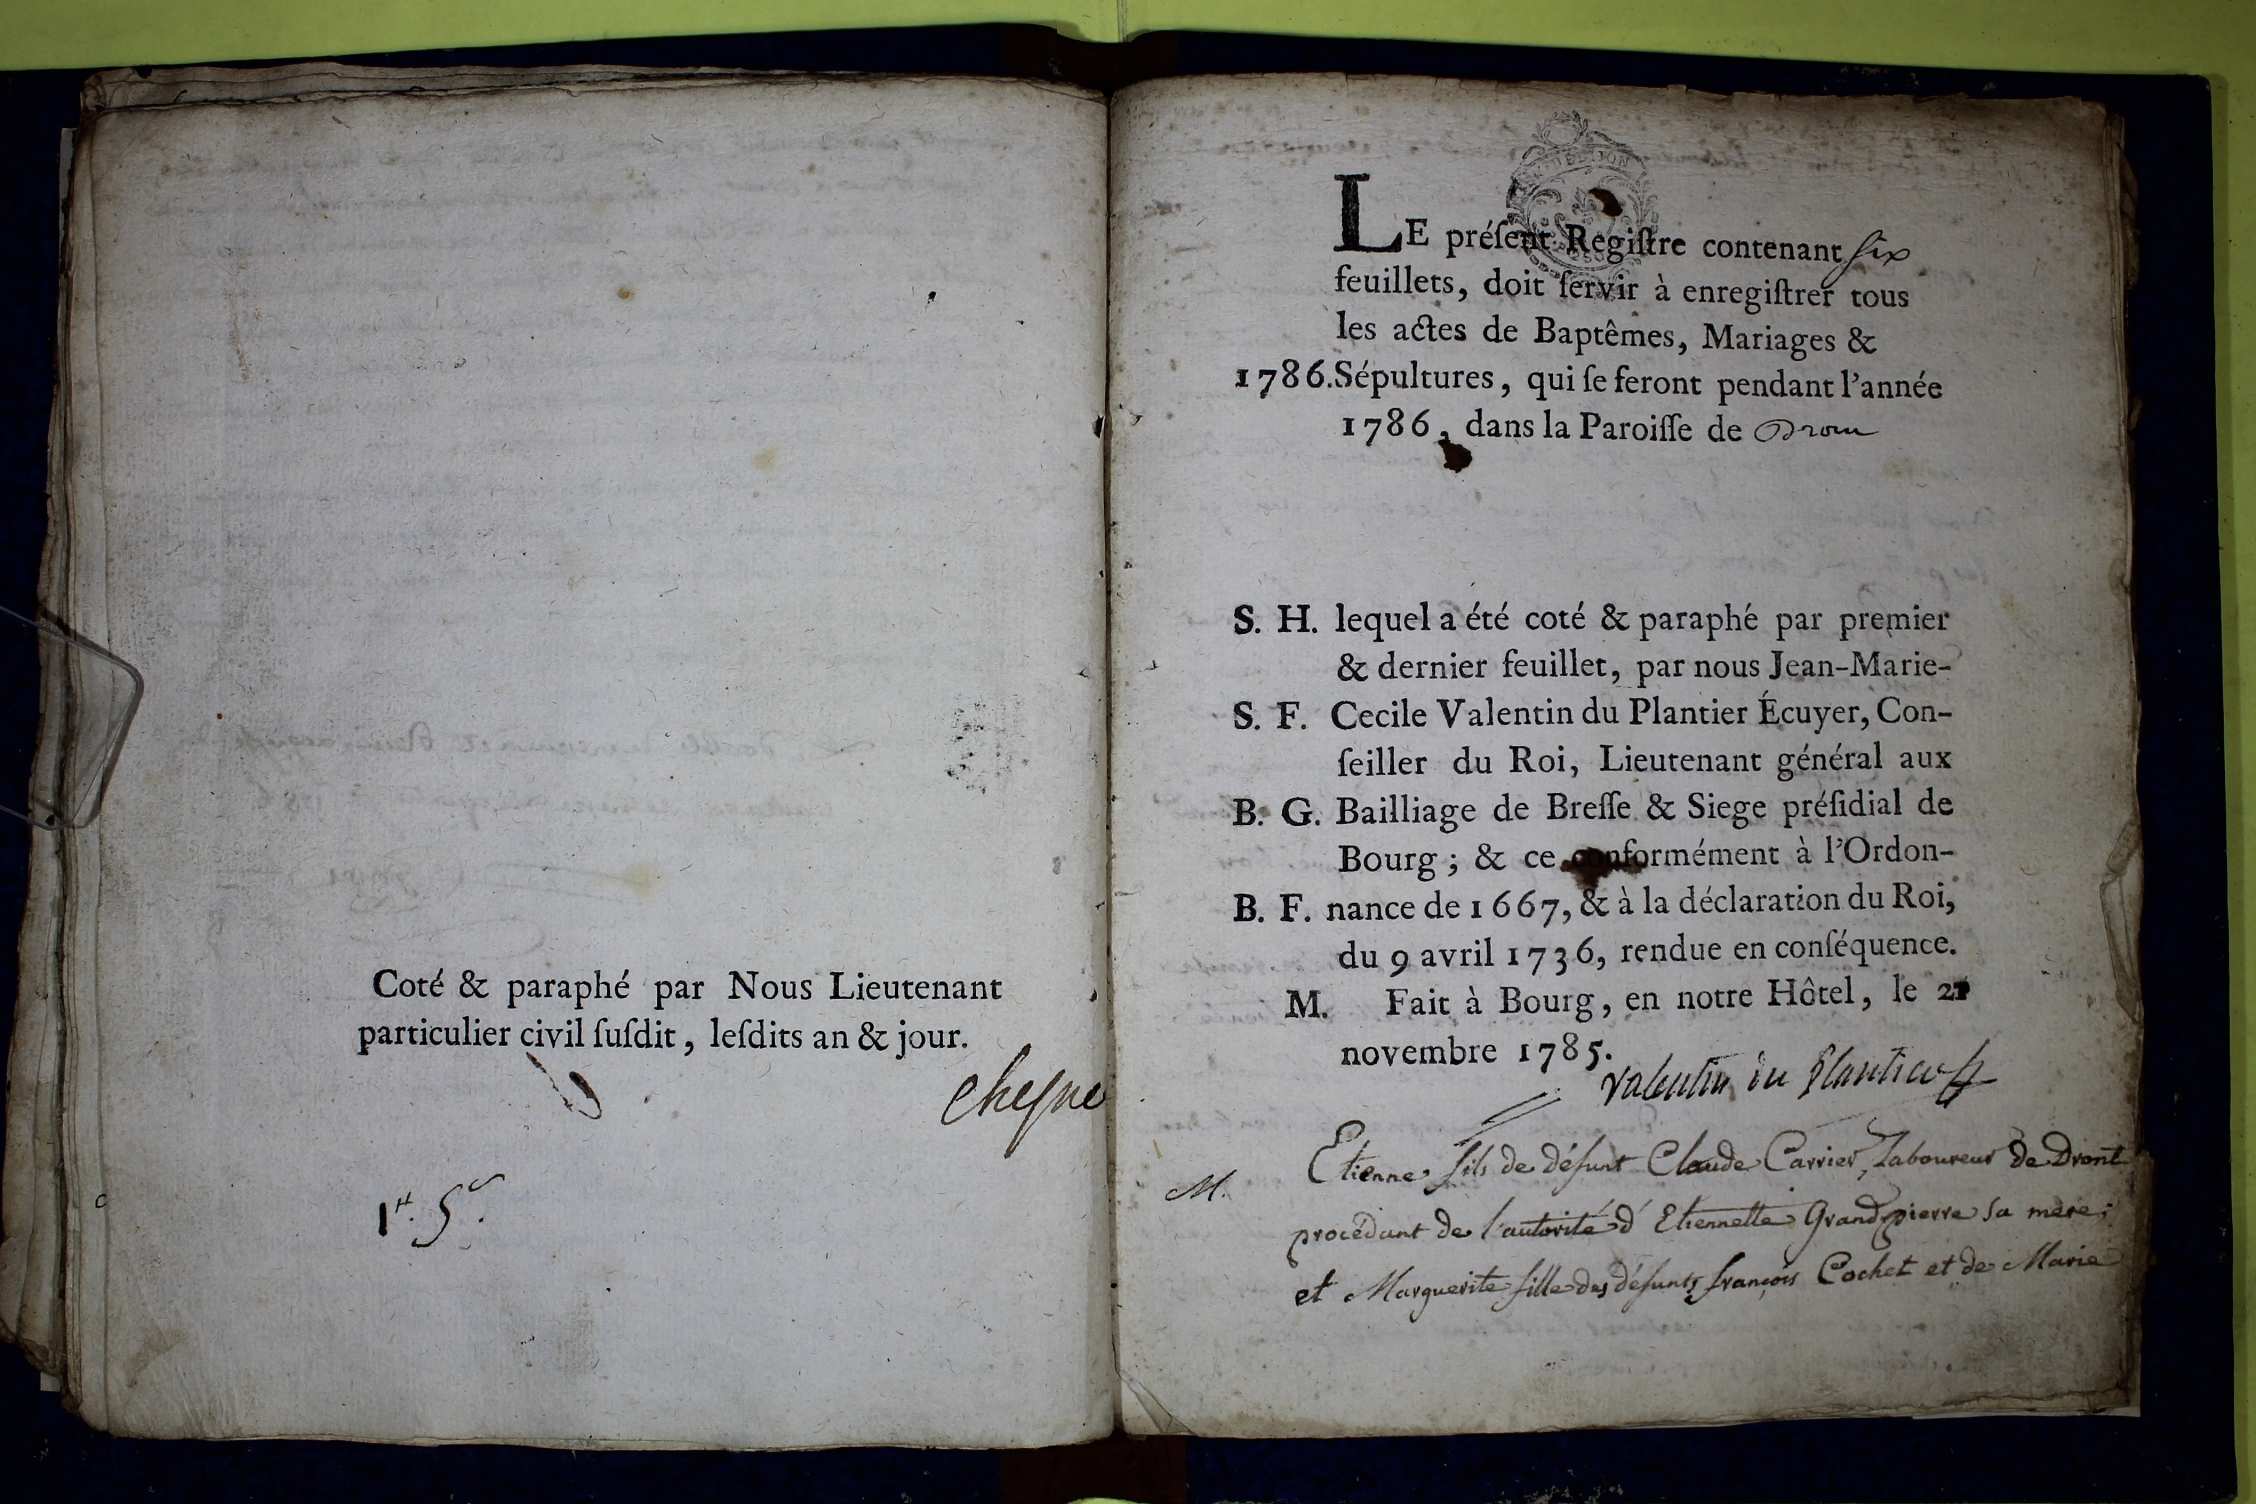 Coté & paraphé par Nous Lieutenant
particulier civil ſuſdit, leſdits an & jour.
1#. 5ˢ.
LE préſent Regiſtre contenant ſix
feuillets, doit ſervir à enregiſtrer tous
les actes de Baptêmes, Mariages &
1786. Sépultures, qui ſe feront pendant l'année
1786, dans la Paroiſſe de Drom
S. H. lequel a été coté & paraphé par premier
& dernier feuillet, par nous Jean-Marie-
S. F. Cecile Valentin du Plantier Écuyer, Con-
ſeiller du Roi, Lieutenant général aux
B. G. Bailliage de Breſſe & Siege préſidial de
Bourg; & ce conformément à l'Ordon-
B. F. nance de 1667, & à la déclaration du Roi,
du 9 avril 1736, rendue en conſéquence.
M. Fait à Bourg, en notre Hôtel, le 21
novembre 1785.
Valentin du Plantier
M. Etienne fils de défunt Claude Carrier, Laboureur de Dront
procédant de l'autorité d'Etiennette Grandpierre sa mère;
et Marguerite fille des défunts françois Cochet et de Marie